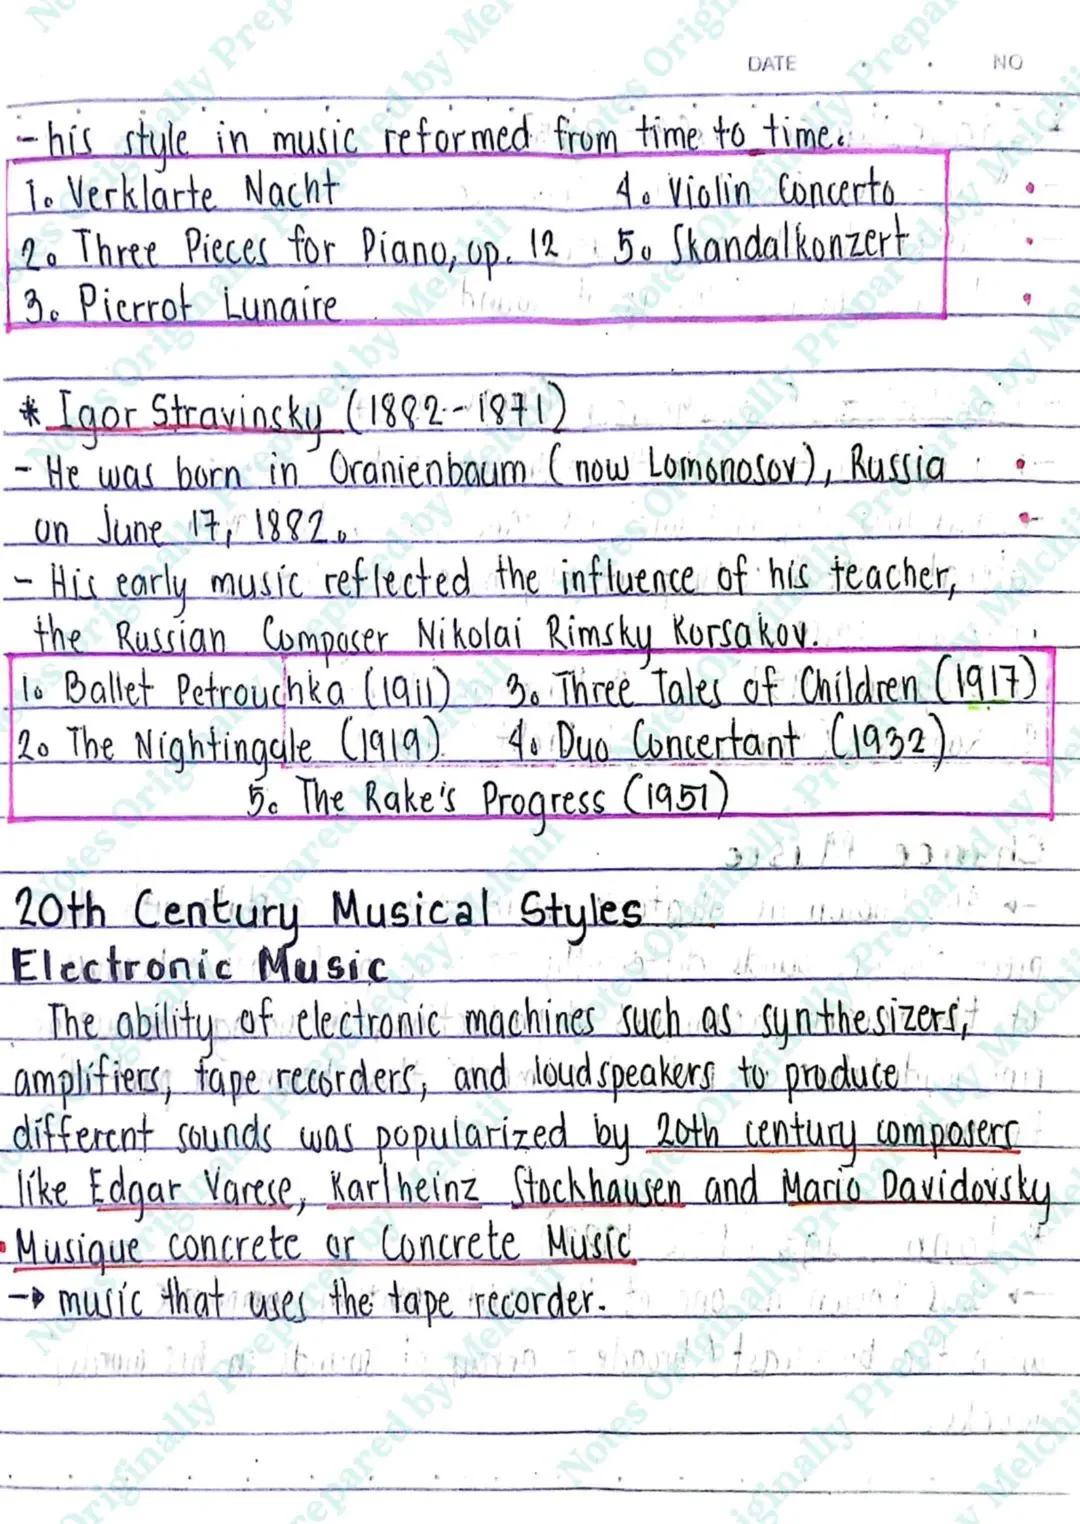 DATE NO
- his style in music reformed from time to time.
1. Verklarte Nacht 4. Violin Concerto
2. Three Pieces for Piano, op. 12 5. Skandalkonzert
3. Pierrot Lunaire
* Igor Stravinsky (1882 - 1871)
- He was born in Oranienbaum (now Lomonosov), Russia
on June 17, 1882.
- His early music reflected the influence of his teacher,
the Russian Composer Nikolai Rimsky Korsakov.
1. Ballet Petrouchka (1911) 3. Three Tales of Children (1917)
2. The Nightingale (1919) 4. Duo Concertant (1932)
5. The Rake's Progress (1951)
20th Century Musical Styles
Electronic Music
The ability of electronic machines such as synthesizers,
amplifiers, tape recorders, and loudspeakers to produce
different sounds was popularized by 20th century composers
like Edgar Varese, Karlheinz Stockhausen and Mario Davidovsky
• Musique concrete or Concrete Music
→ music that uses the tape recorder.
Notes Originally Prepared by Melchii